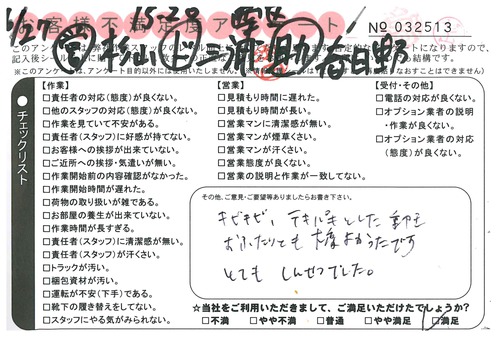 お客様不満足度アンケート
№ 032513
チェックリスト
【作業】
□責任者の対応(態度)が良くない。
□他のスタッフの対応(態度)が良くない。
□作業を見ていて不安がある。
□責任者(スタッフ)に好感が持てない。
□お客様への挨拶が出来ていない。
□ご近所への挨拶・気遣いが無い。
□作業開始前の内容確認がなかった。
□作業開始時間が遅れた。
□荷物の取り扱いが雑である。
□お部屋の養生が出来ていない。
□作業時間が長すぎる。
□責任者(スタッフ)に清潔感が無い。
□責任者(スタッフ)が汗くさい。
□トラックが汚い。
□梱包資材が汚い。
□運転が不安(下手)である。
□靴下の履き替えをしてない。
□スタッフにやる気がみられない。
【営業】
□見積もり時間に遅れた。
□見積もり時間が長い。
□営業マンに清潔感が無い。
□営業マンが煙草くさい。
□営業マンが汗くさい。
□営業態度が良くない。
□営業の説明と作業が一致してない。
【受付・その他】
□電話の対応が良くない。
□オプション業者の説明
・作業が良くない。
□オプション業者の対応
(態度)が良くない。
その他、ご意見・ご要望等ありましたらお書き下さい。
キビキビ、テキパキとした動き
おふたりとも大変よかったです
とても しんせつでした。
☆当社をご利用いただきまして、ご満足いただけたでしょうか?
□不満 □やや不満 □普通 □やや満足 □満足